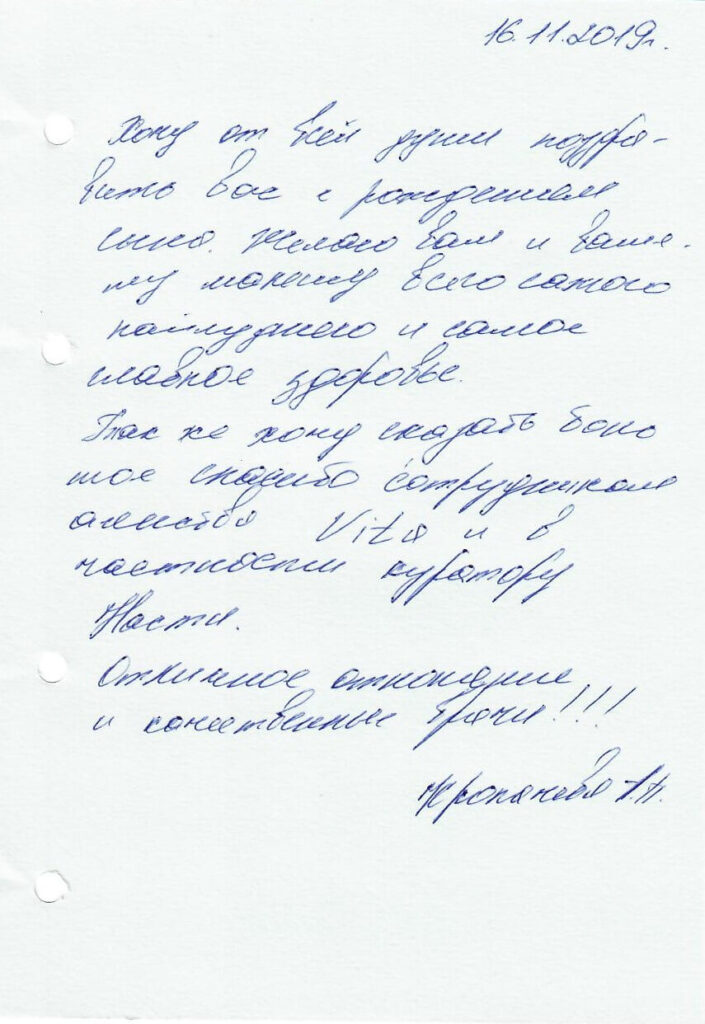 16.11.2019г.
Хочу от всей души поздра-
вить вас с рождением
сына. Желаю вам и ваше-
му малышу всего самого
наилучшего и самое
главное здоровье.
Так же хочу сказать боль
шое спасибо сотрудникам
агенства Vita и в
частности куратору
Насти.
Отличное отношение
и качественные врачи!!!